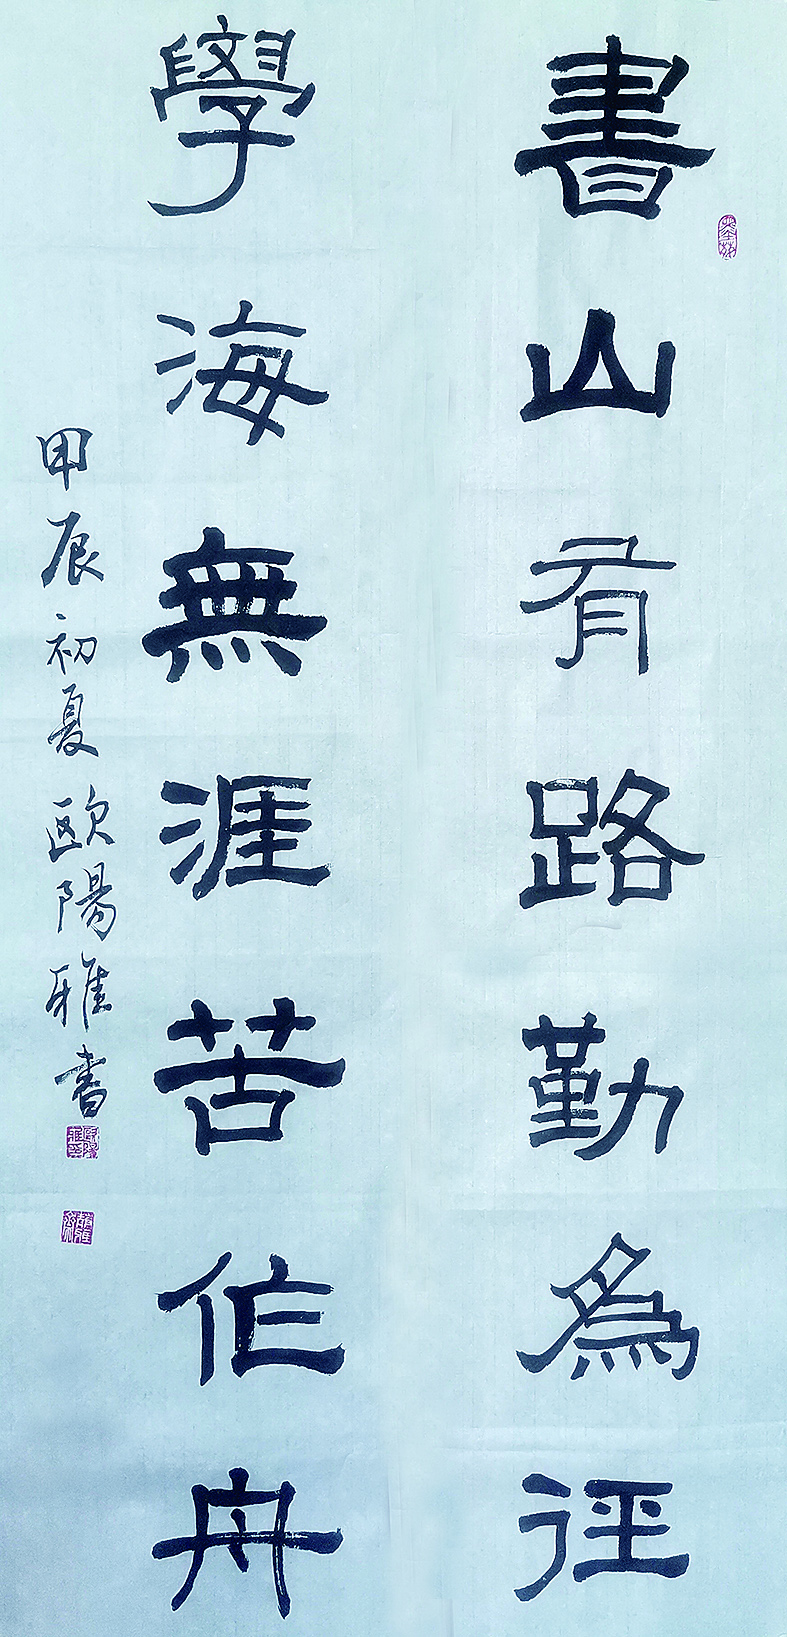 書山有路勤為徑
學海無涯苦作舟
甲辰初夏歐陽雅書